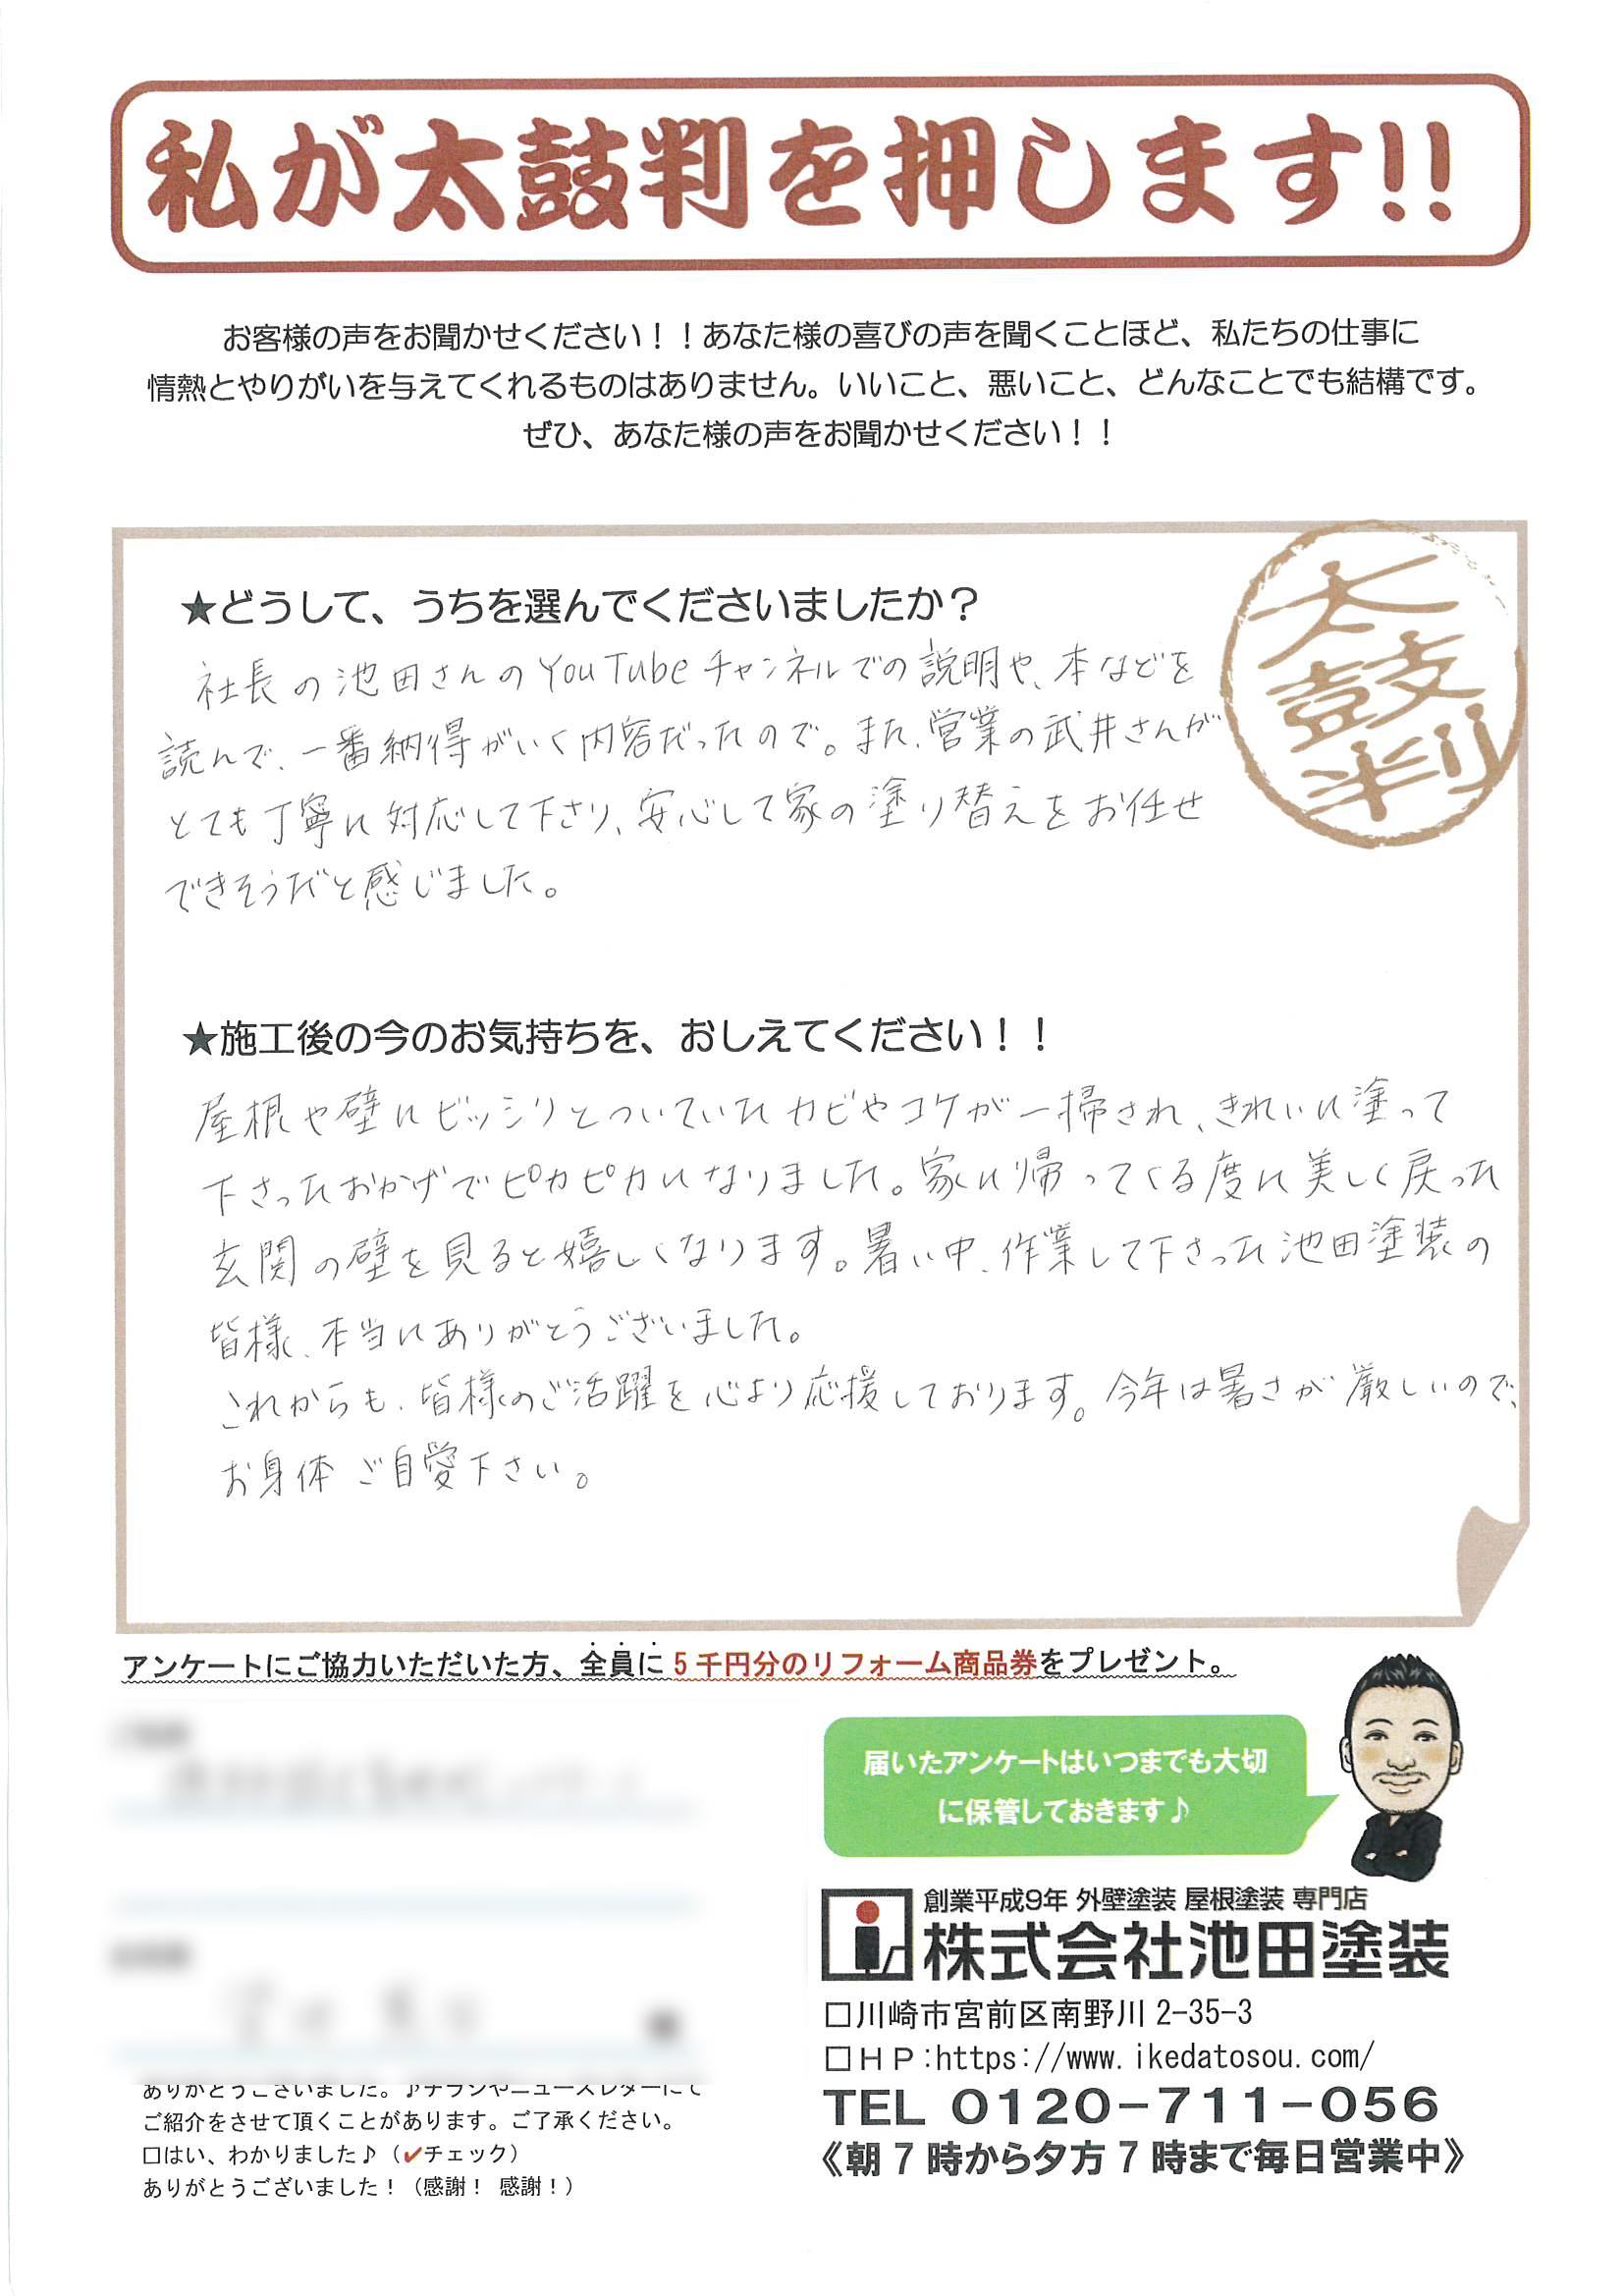 私が太鼓判を押します!!
お客様の声をお聞かせください！！あなた様の喜びの声を聞くことほど、私たちの仕事に
情熱とやりがいを与えてくれるものはありません。いいこと、悪いこと、どんなことでも結構です。
ぜひ、あなた様の声をお聞かせください！！
太鼓判
★どうして、うちを選んでくださいましたか？
社長の池田さんのYouTubeチャンネルでの説明や、本などを
読んで、一番納得がいく内容だったので。また、営業の武井さんが
とても丁寧に対応して下さり、安心して家の塗り替えをお任せ
できそうだと感じました。
★施工後の今のお気持ちを、おしえてください！！
屋根や壁にビッシリとついていたカビやコケが一掃され、きれいに塗って
下さったおかげでピカピカになりました。家に帰ってくる度に美しく戻った
玄関の壁を見ると嬉しくなります。暑い中、作業して下さった池田塗装の
皆様、本当にありがとうございました。
これからも、皆様のご活躍を心より応援しております。今年は暑さが厳しいので、
お身体ご自愛下さい。
アンケートにご協力いただいた方、全員に5千円分のリフォーム商品券をプレゼント。
届いたアンケートはいつまでも大切
に保管しておきます♪
創業平成9年 外壁塗装 屋根塗装 専門店
株式会社池田塗装
□川崎市宮前区南野川 2-35-3
□HP:https://www.ikedatosou.com/
TEL 0120-711-056
《朝7時から夕方7時まで毎日営業中》
ありがとうございました。♪チラシやニュースレターにて
ご紹介をさせて頂くことがあります。ご了承ください。
□はい、わかりました♪（✔チェック）
ありがとうございました！（感謝！ 感謝！）